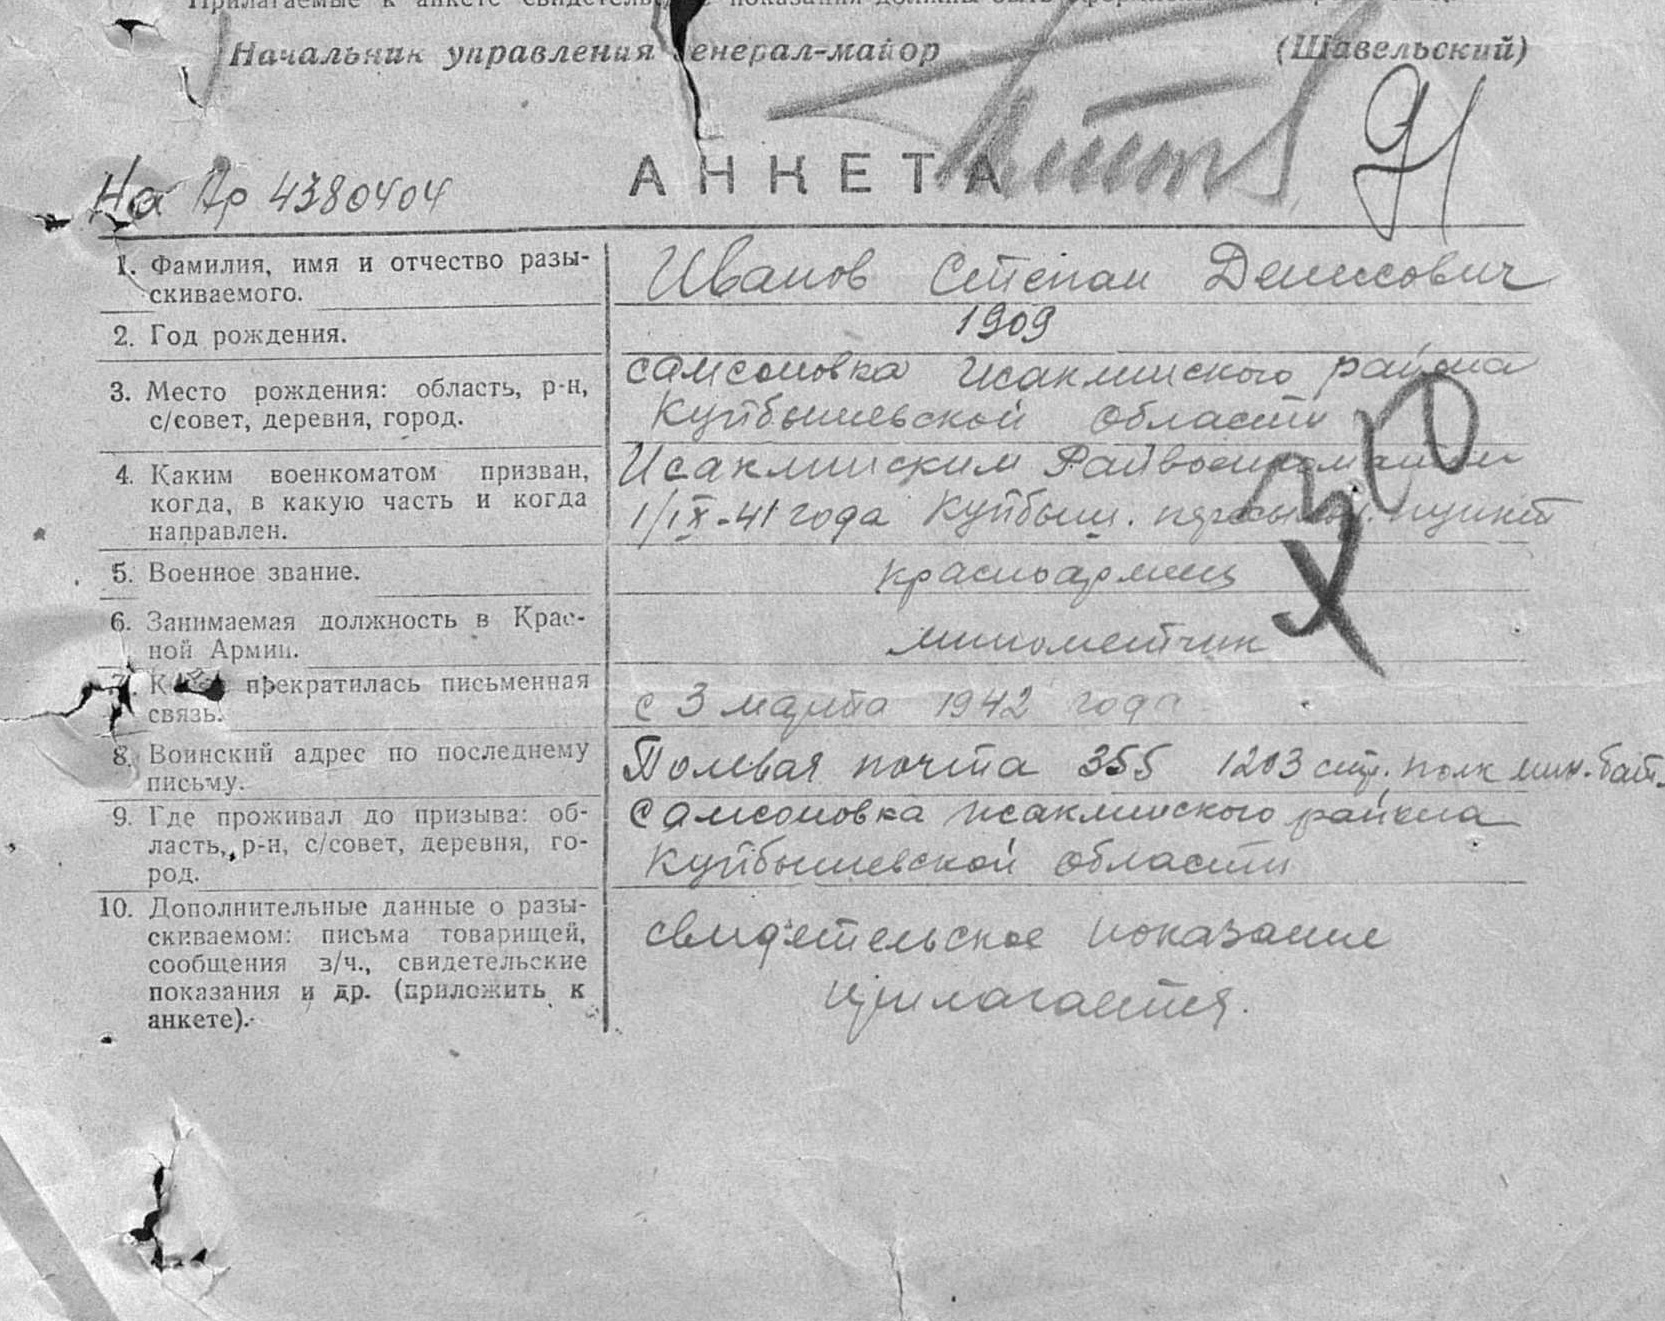 Прилагаемые к анкете показания должны быть
Начальник управления генерал-майор (Шавельский)
На Пр 4380404 АНКЕТА 91
1. Фамилия, имя и отчество разы-
скиваемого.
Иванов Степан Денисович
2. Год рождения.
1909
3. Место рождения: область, р-н,
с/совет, деревня, город.
Самсоновка Исаклинского района
Куйбышевской области
4. Каким военкоматом призван,
когда, в какую часть и когда
направлен.
Исаклинским Райвоенкоматом
1/IX-41 года Куйбыш. пересыльн. пункт
5. Военное звание.
красноармеец
6. Занимаемая должность в Крас-
ной Армии.
минометчик
7. Когда прекратилась письменная
связь.
с 3 марта 1942 года
8. Воинский адрес по последнему
письму.
Полевая почта 355 1203 стр. полк мин. бат.
9. Где проживал до призыва: об-
ласть, р-н, с/совет, деревня, го-
род.
Самсоновка Исаклинского района
Куйбышевской области
10. Дополнительные данные о разы-
скиваемом: письма товарищей,
сообщения з/ч., свидетельские
показания и др. (приложить к
анкете).
свидетельское показание
прилагается.